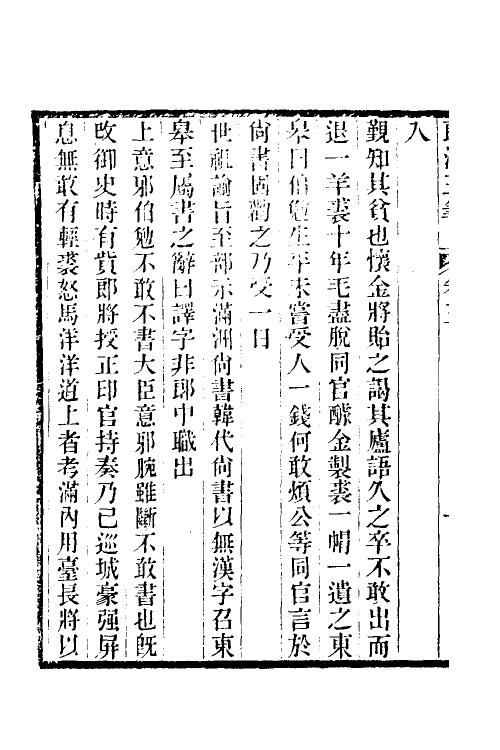 入
覲知其貧也懷金將貽之謁其廬語久之卒不敢出而
退一羊裘十年毛盡脫同官醵金製裘一帽一遺之東
皋曰伯勉生平未嘗受人一錢何敢煩公等同官言於
尚書固勸之乃受一日
世祖諭旨至部示滿洲尚書韓代尚書以無漢字召東
皋至屬書之辭曰譯字非郎中職出
上意邪伯勉不敢不書大臣意邪腕雖斷不敢書也旣
改御史時有貲郎將授正印官持奏乃已巡城豪强屏
息無敢有輕裘怒馬洋洋道上者考滿內用臺長將以